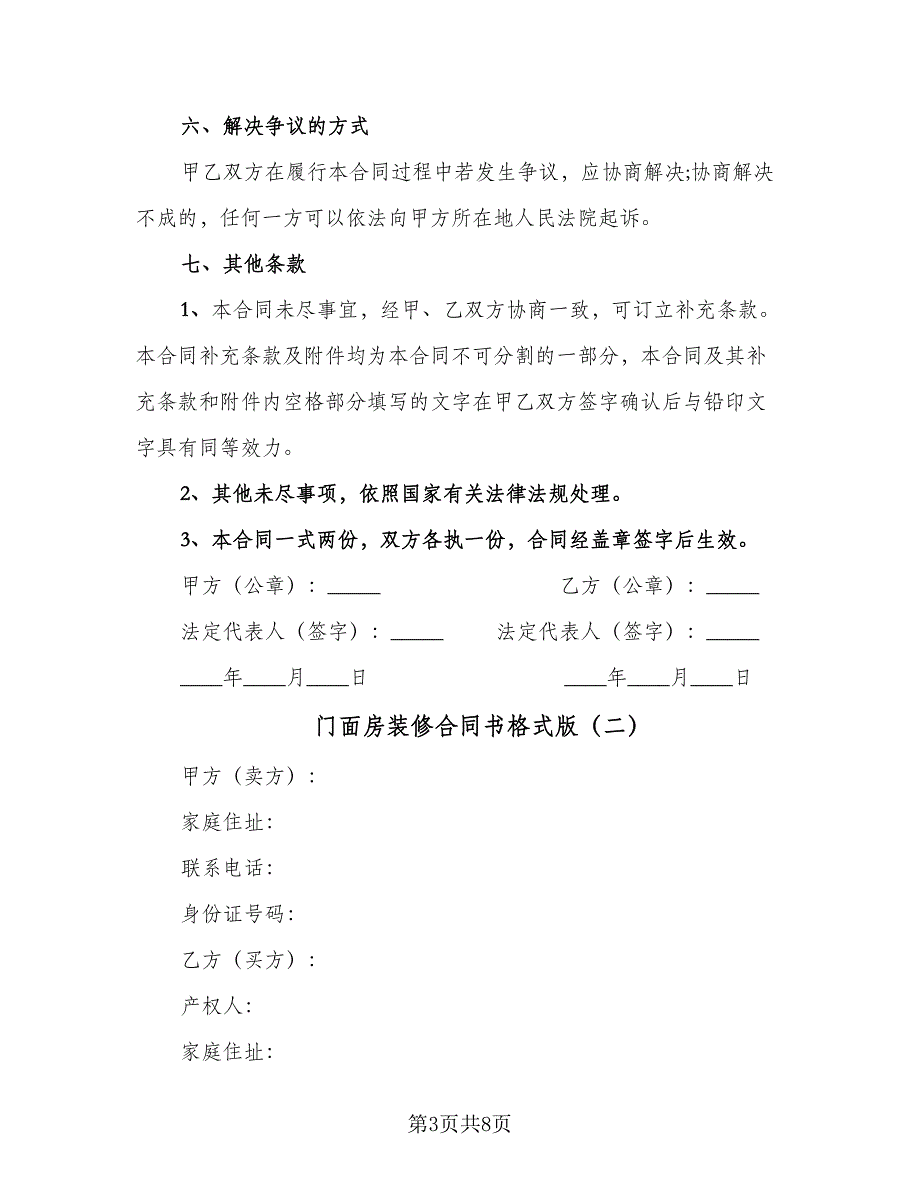 六、解决争议的方式
甲乙双方在履行本合同过程中若发生争议，应协商解决;协商解决
不成的，任何一方可以依法向甲方所在地人民法院起诉。
七、其他条款
1、本合同未尽事宜，经甲、乙双方协商一致，可订立补充条款。
本合同补充条款及附件均为本合同不可分割的一部分，本合同及其补
充条款和附件内空格部分填写的文字在甲乙双方签字确认后与铅印文
字具有同等效力。
2、其他未尽事项，依照国家有关法律法规处理。
3、本合同一式两份，双方各执一份，合同经盖章签字后生效。
甲方（公章）：_____ 乙方（公章）：_____
法定代表人（签字）：_____ 法定代表人（签字）：_____
____年____月____日 ____年____月____日
门面房装修合同书格式版（二）
甲方（卖方）：
家庭住址：
联系电话：
身份证号码：
乙方（买方）：
产权人：
家庭住址：
第3页共8页